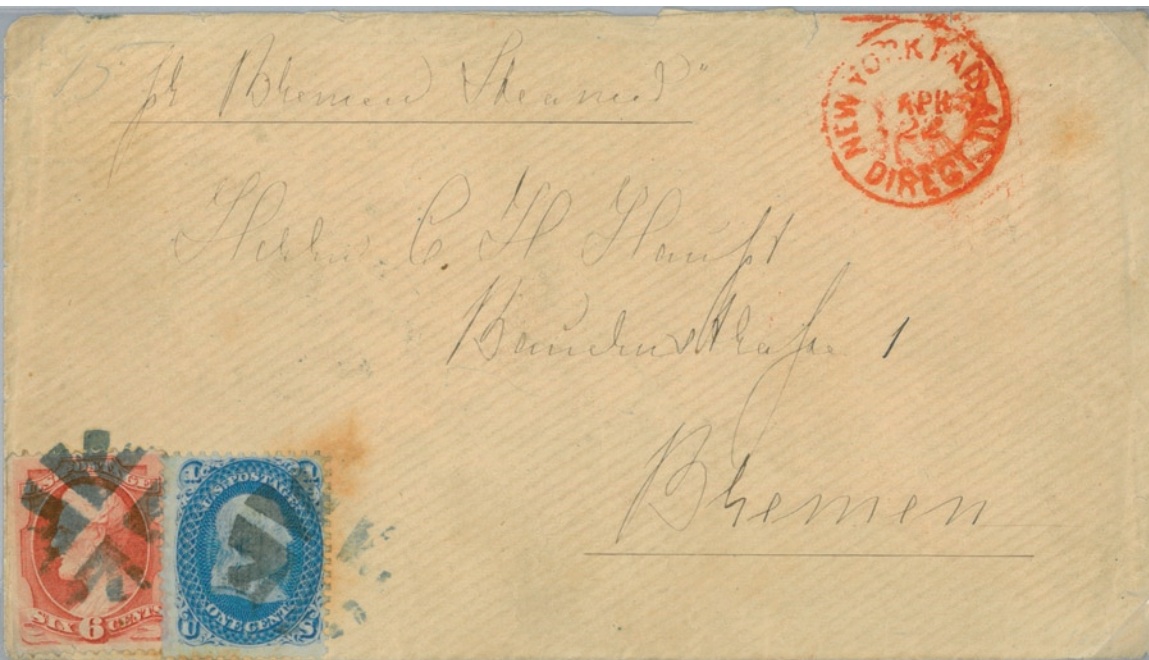 pr Bremen Steamer"
NEW YORK PAID ALL
APR
22
DIRECT
Herrn C. H. Haupt
1
Bremen
U.S. POSTAGE
SIX 6 CENTS
1 1
U.S. POSTAGE
ONE CENT
U S